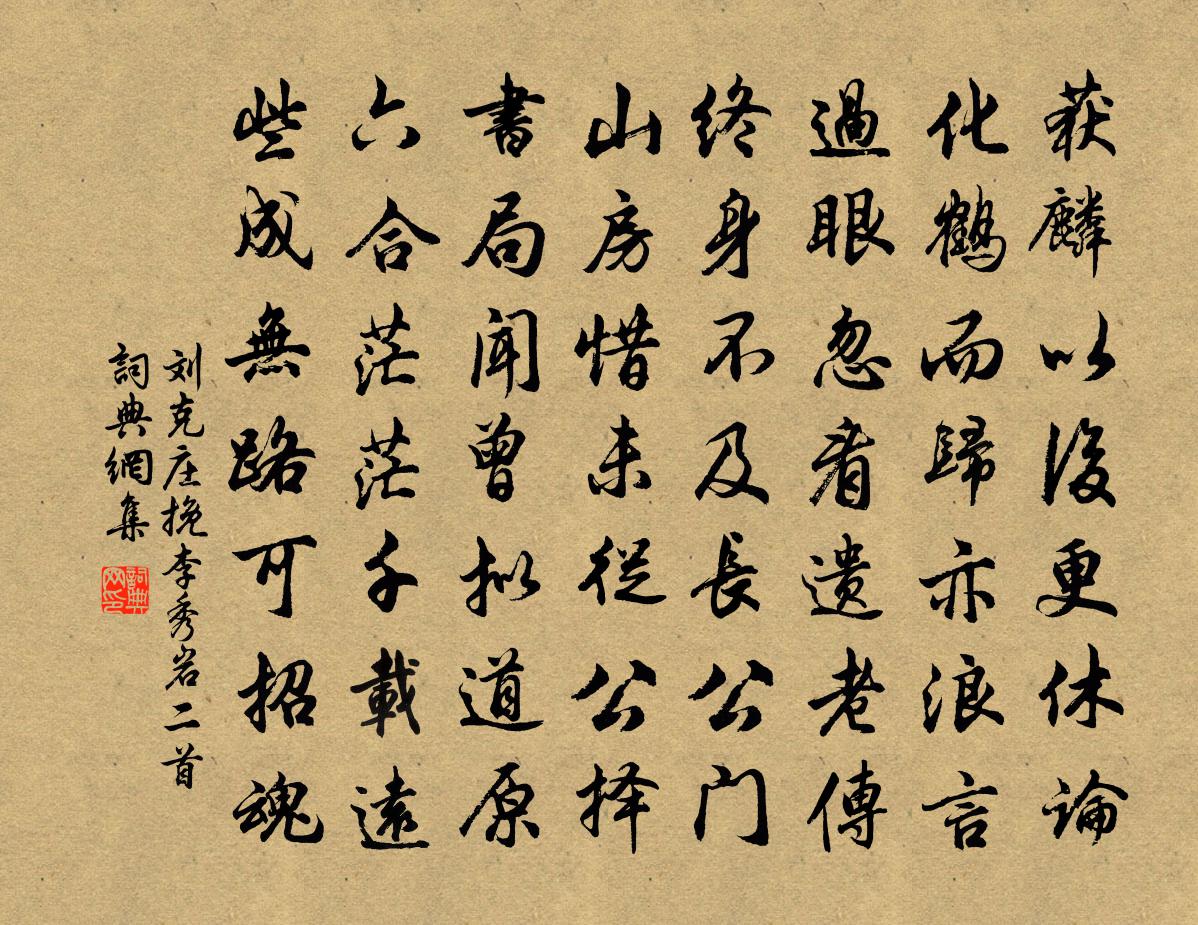 获麟以後更休論
化鶴而歸亦浪言
過眼忽看遗老傳
终身不及長公门
山房惜未從公择
書局聞曾拟道原
六合茫茫千載遠
些成無路可招魂
刘克庄挽李秀岩二首
詞典網集
詞典网印